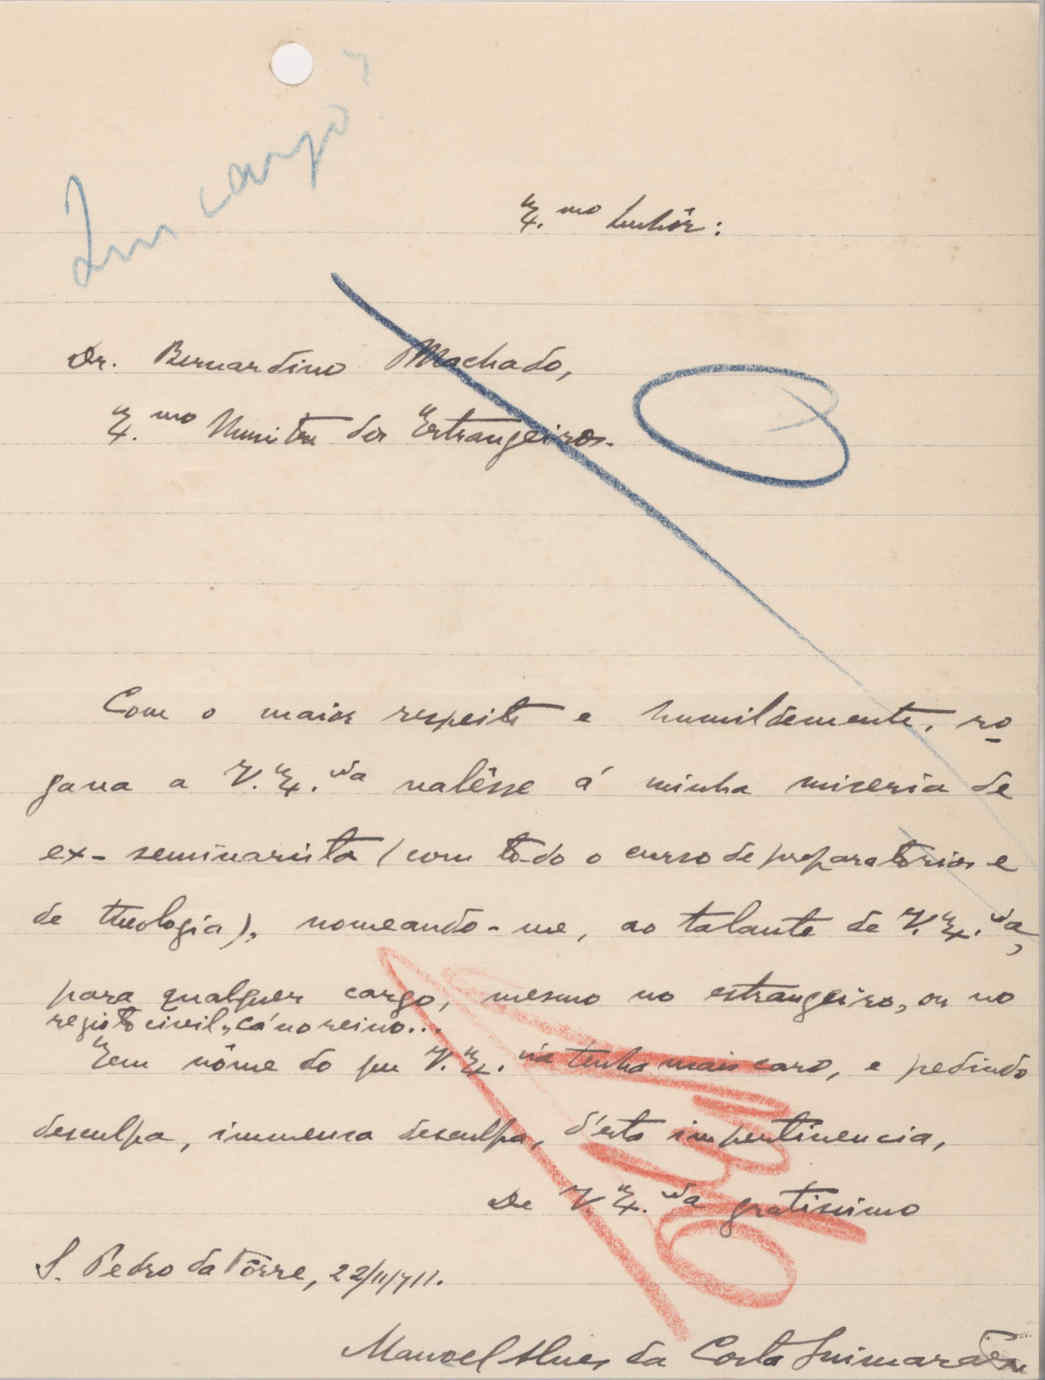 Um cargo
Ex.mo Senhôr:
Dr. Bernardino Machado,
Ex.mo Ministro dos Estrangeiros.
Com o maior respeito e humildemente, ro
gava a V. Ex.cia valêsse á minha miseria de
ex-seminarista (com todo o curso de preparatorios e
de theologia), nomeando-me, ao talante de V. Ex.cia,
para qualquer cargo, mesmo no estrangeiro, ou no
registo civil, cá no reino...
Em nôme do que V. Ex.cia tenha mais caro, e pedindo
desculpa, immensa desculpa, d'esta impertinencia,
De V. Ex.cia gratissimo
S. Pedro da Tôrre, 22/11/911.
Manoel Alves da Costa Guimarães